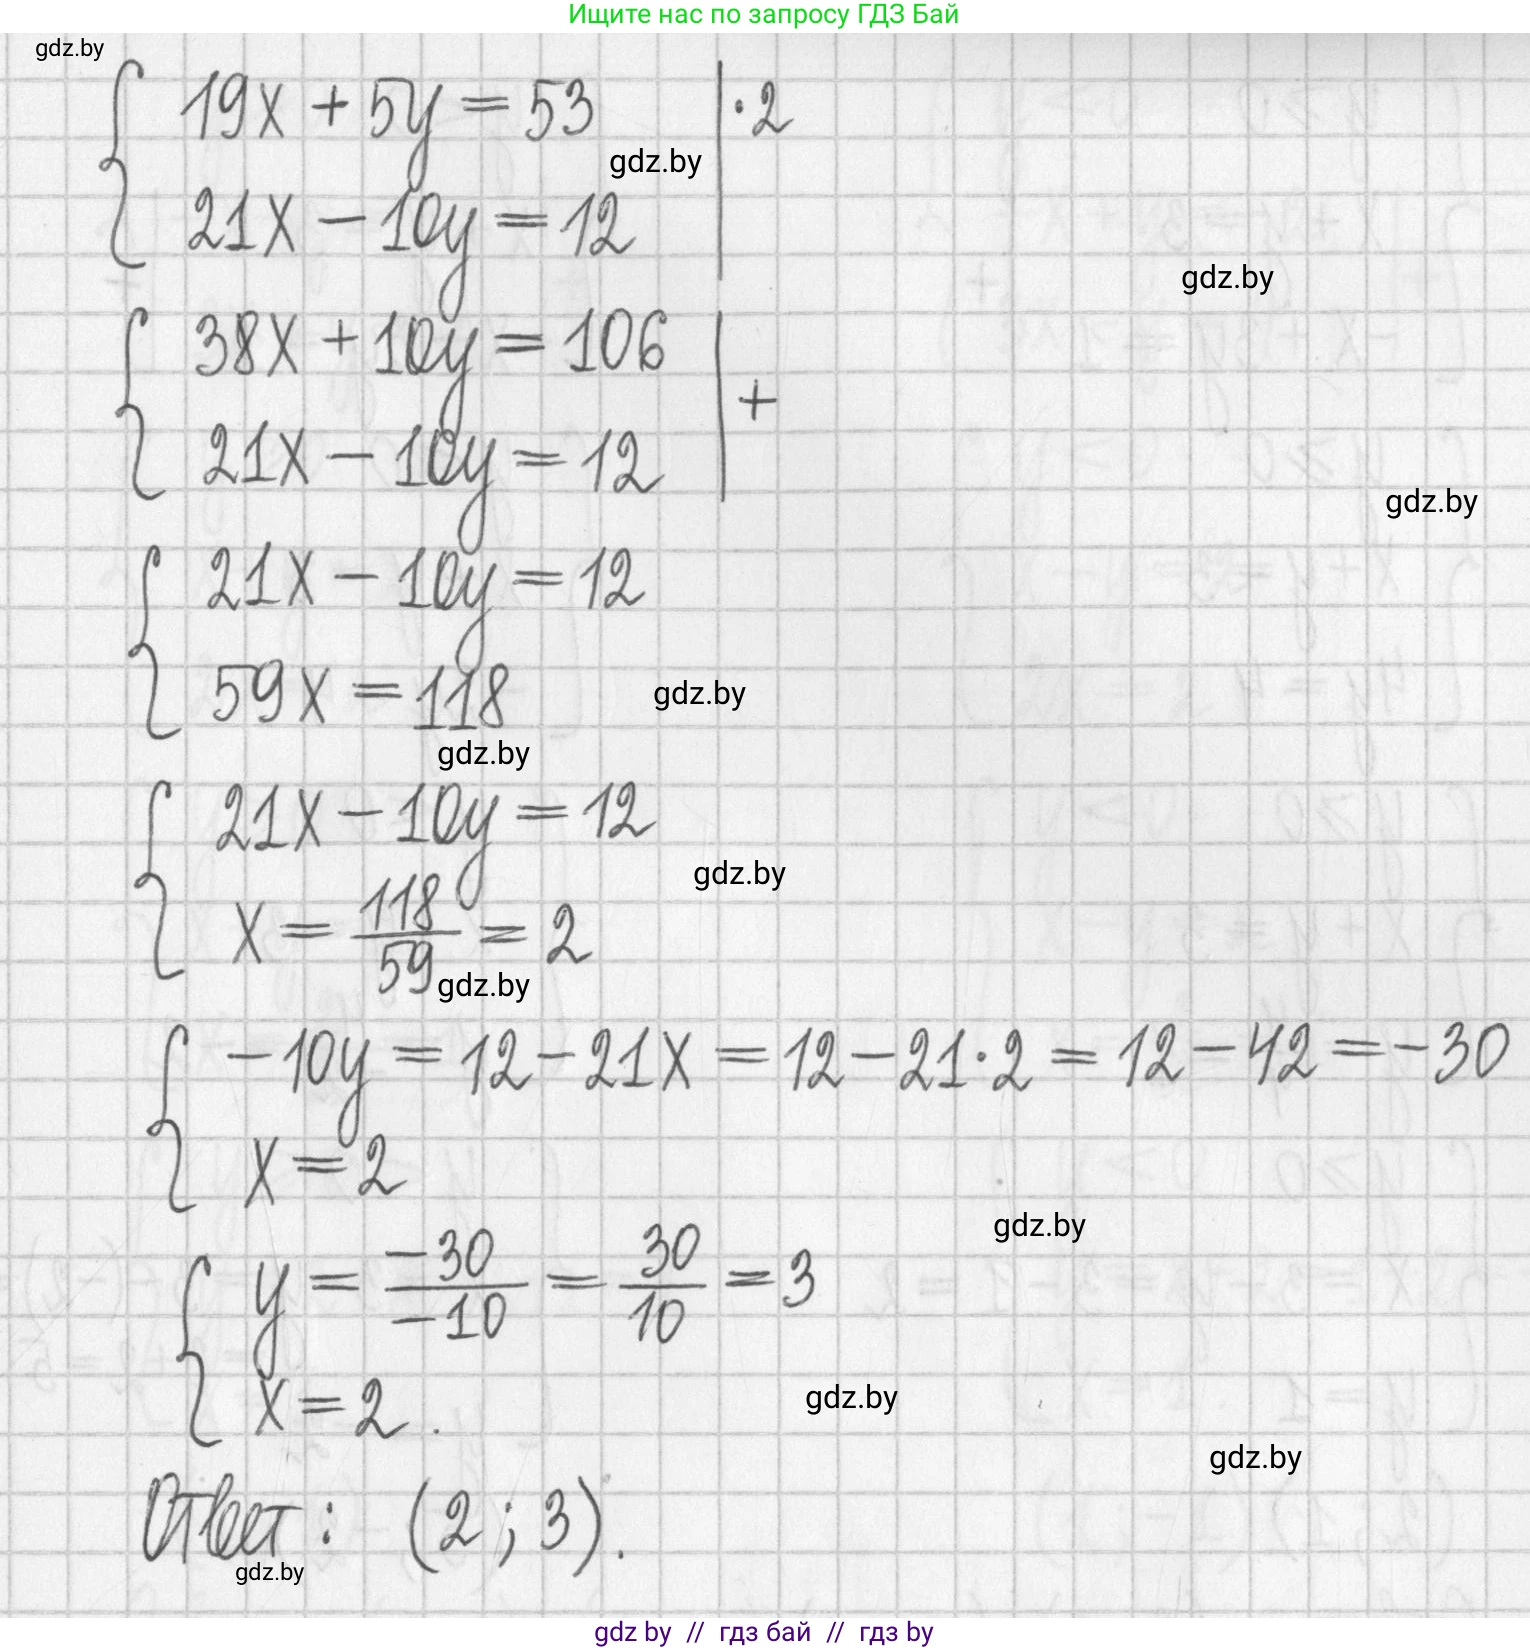 Ищите нас по запросу ГДЗ Бай
gdz.by
19x + 5y = 53 | · 2
gdz.by
21x - 10y = 12
gdz.by
38x + 10y = 106
+
21x - 10y = 12
gdz.by
21x - 10y = 12
59x = 118
gdz.by
gdz.by
21x - 10y = 12
gdz.by
x = 118/59 = 2
gdz.by
-10y = 12 - 21x = 12 - 21·2 = 12 - 42 = -30
x = 2
gdz.by
y = -30/-10 = 30/10 = 3
x = 2.
gdz.by
gdz.by
Ответ: (2; 3).
gdz.by
gdz by // гдз бай // гдз by